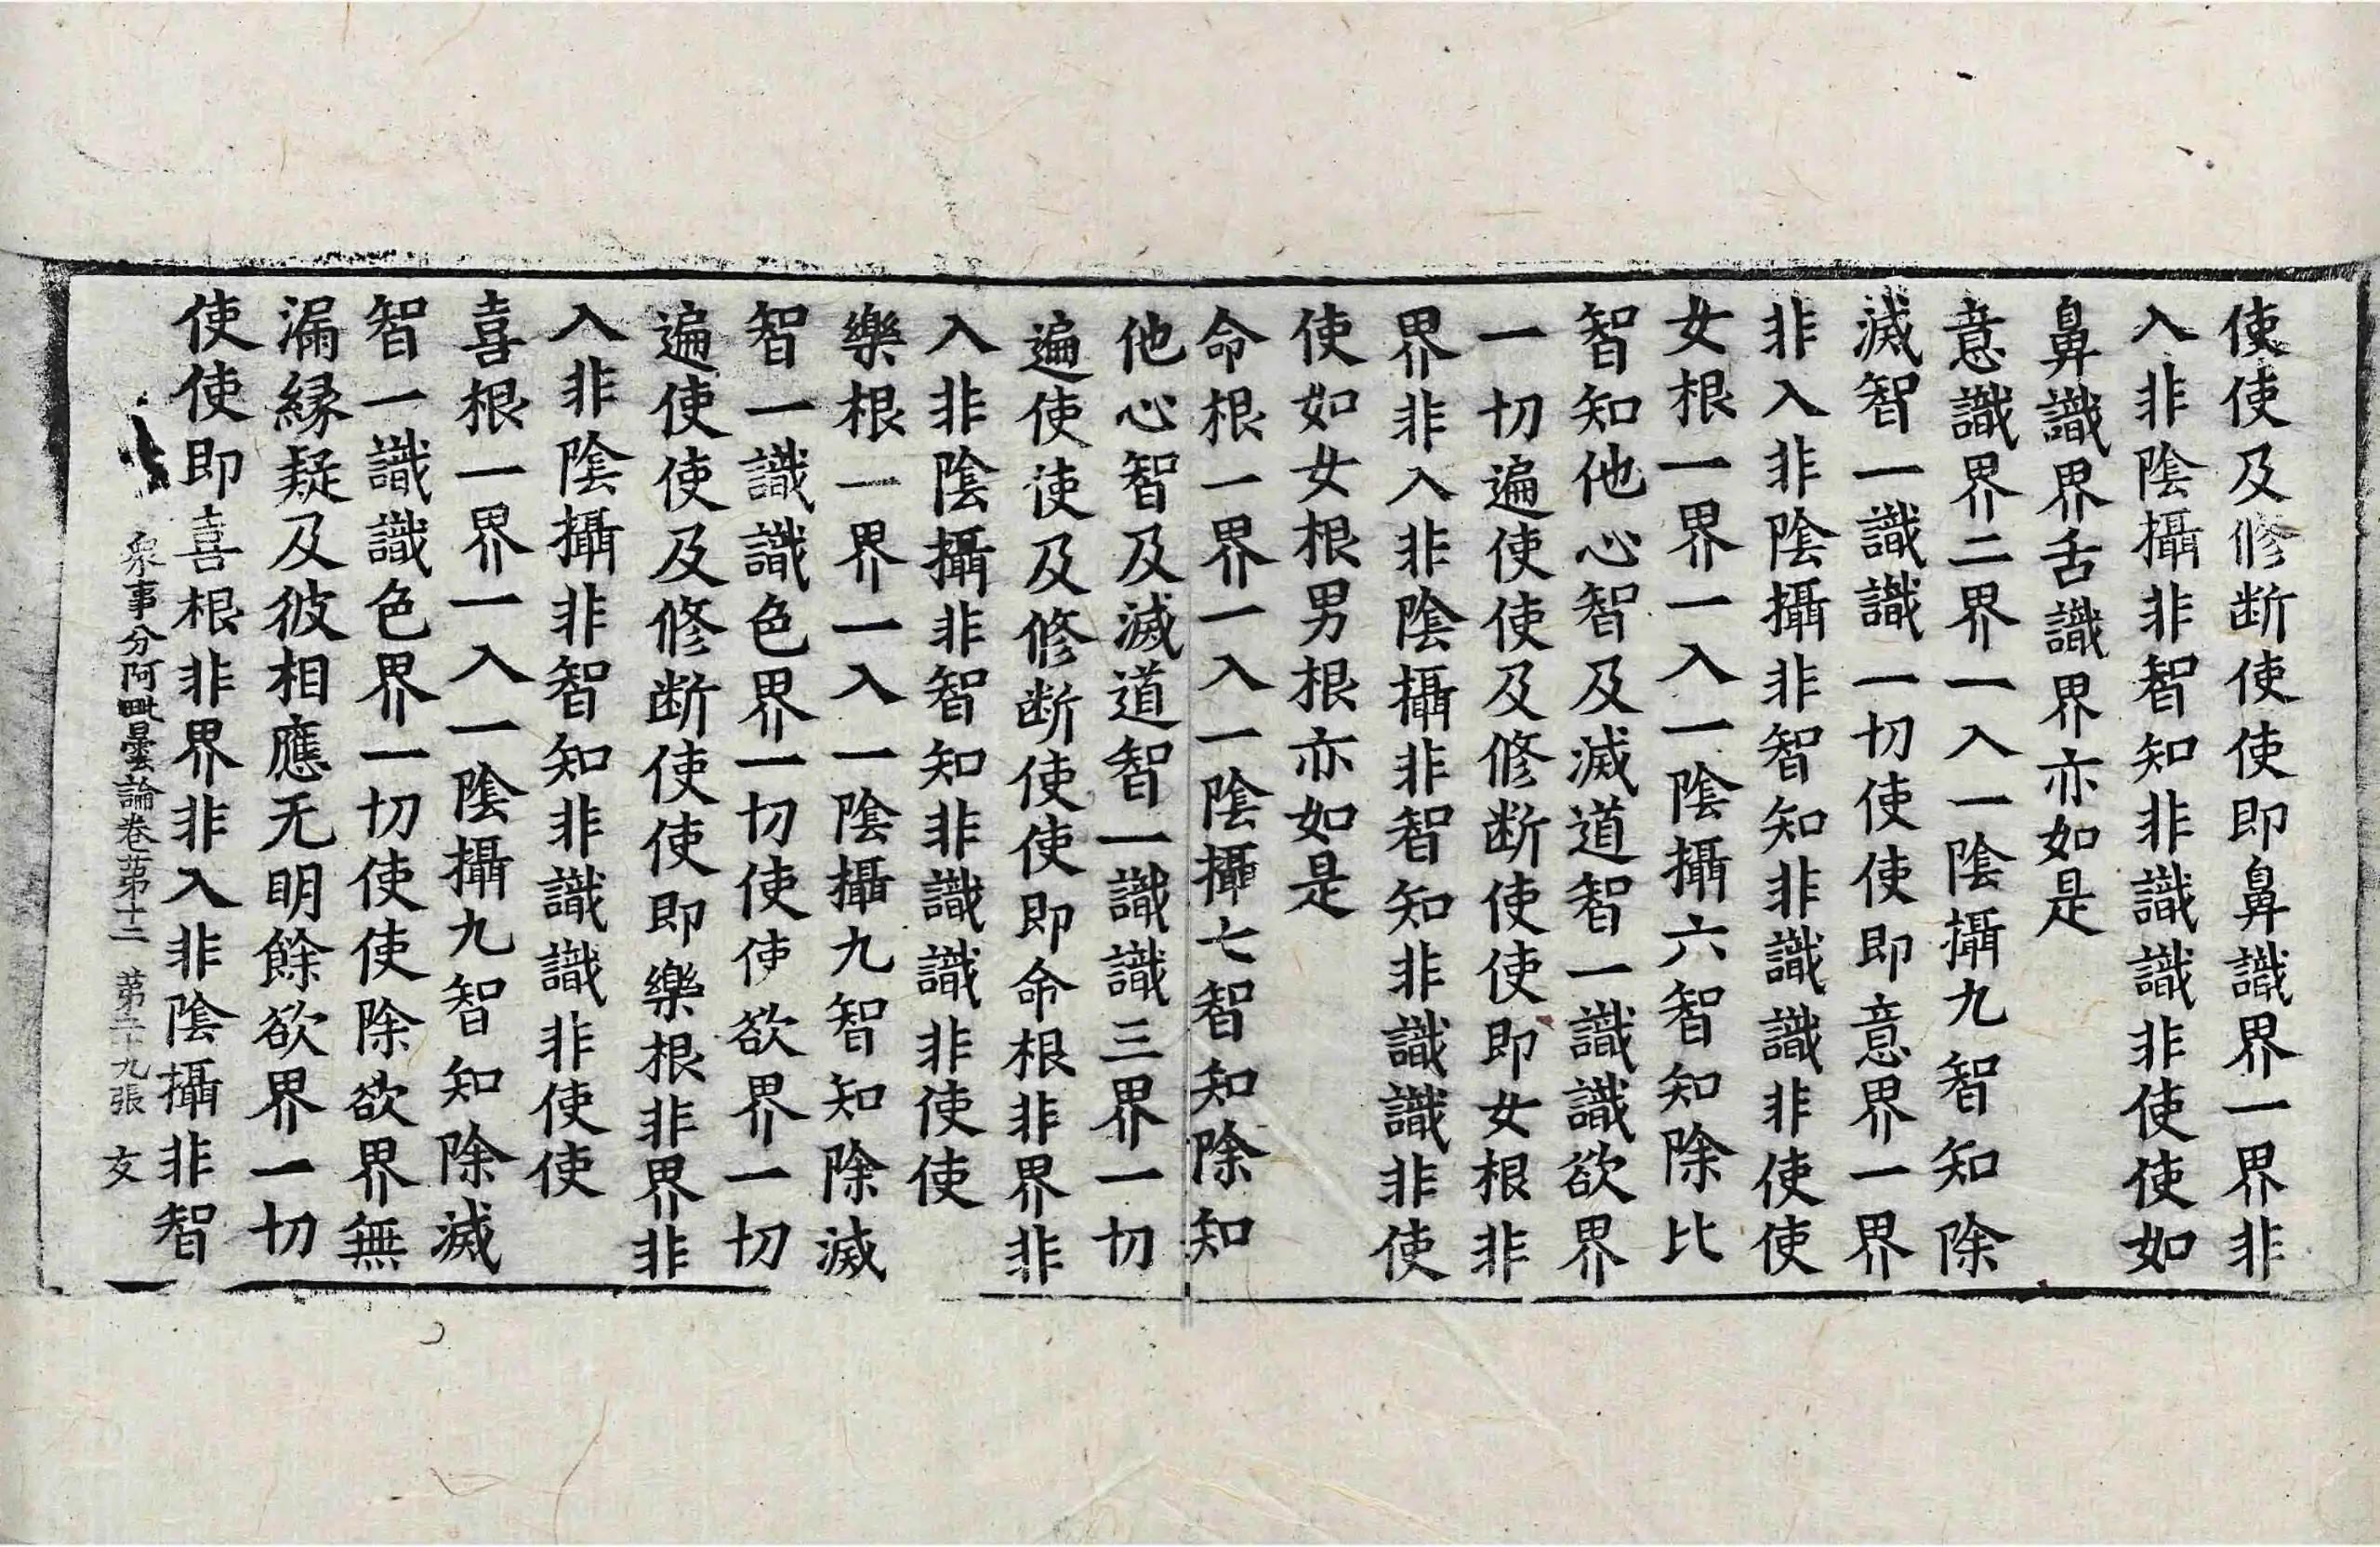 使使及修断使使即鼻識界一界非
入非陰攝非智知非識識非使使如
鼻識界舌識界亦如是
意識界二界一入一陰攝九智知除
滅智一識識一切使使即意界一界
非入非陰攝非智知非識識非使使
女根一界一入一陰攝六智知除比
智知他心智及滅道智一識識欲界
一切遍使使及修断使使即女根非
界非入非陰攝非智知非識識非使
使如女根男根亦如是
命根一界一入一陰攝七智知除知
他心智及滅道智一識識三界一切
遍使使及修断使使即命根非界非
入非陰攝非智知非識識非使使
樂根一界一入一陰攝九智知除滅
智一識識色界一切使使欲界一切
遍使使及修断使使即樂根非界非
入非陰攝非智知非識識非使使
喜根一界一入一陰攝九智知除滅
智一識識色界一切使使除欲界無
漏縁疑及彼相應无明餘欲界一切
使使即喜根非界非入非陰攝非智
衆事分阿毗曇論卷苐十二 苐二十九張 文